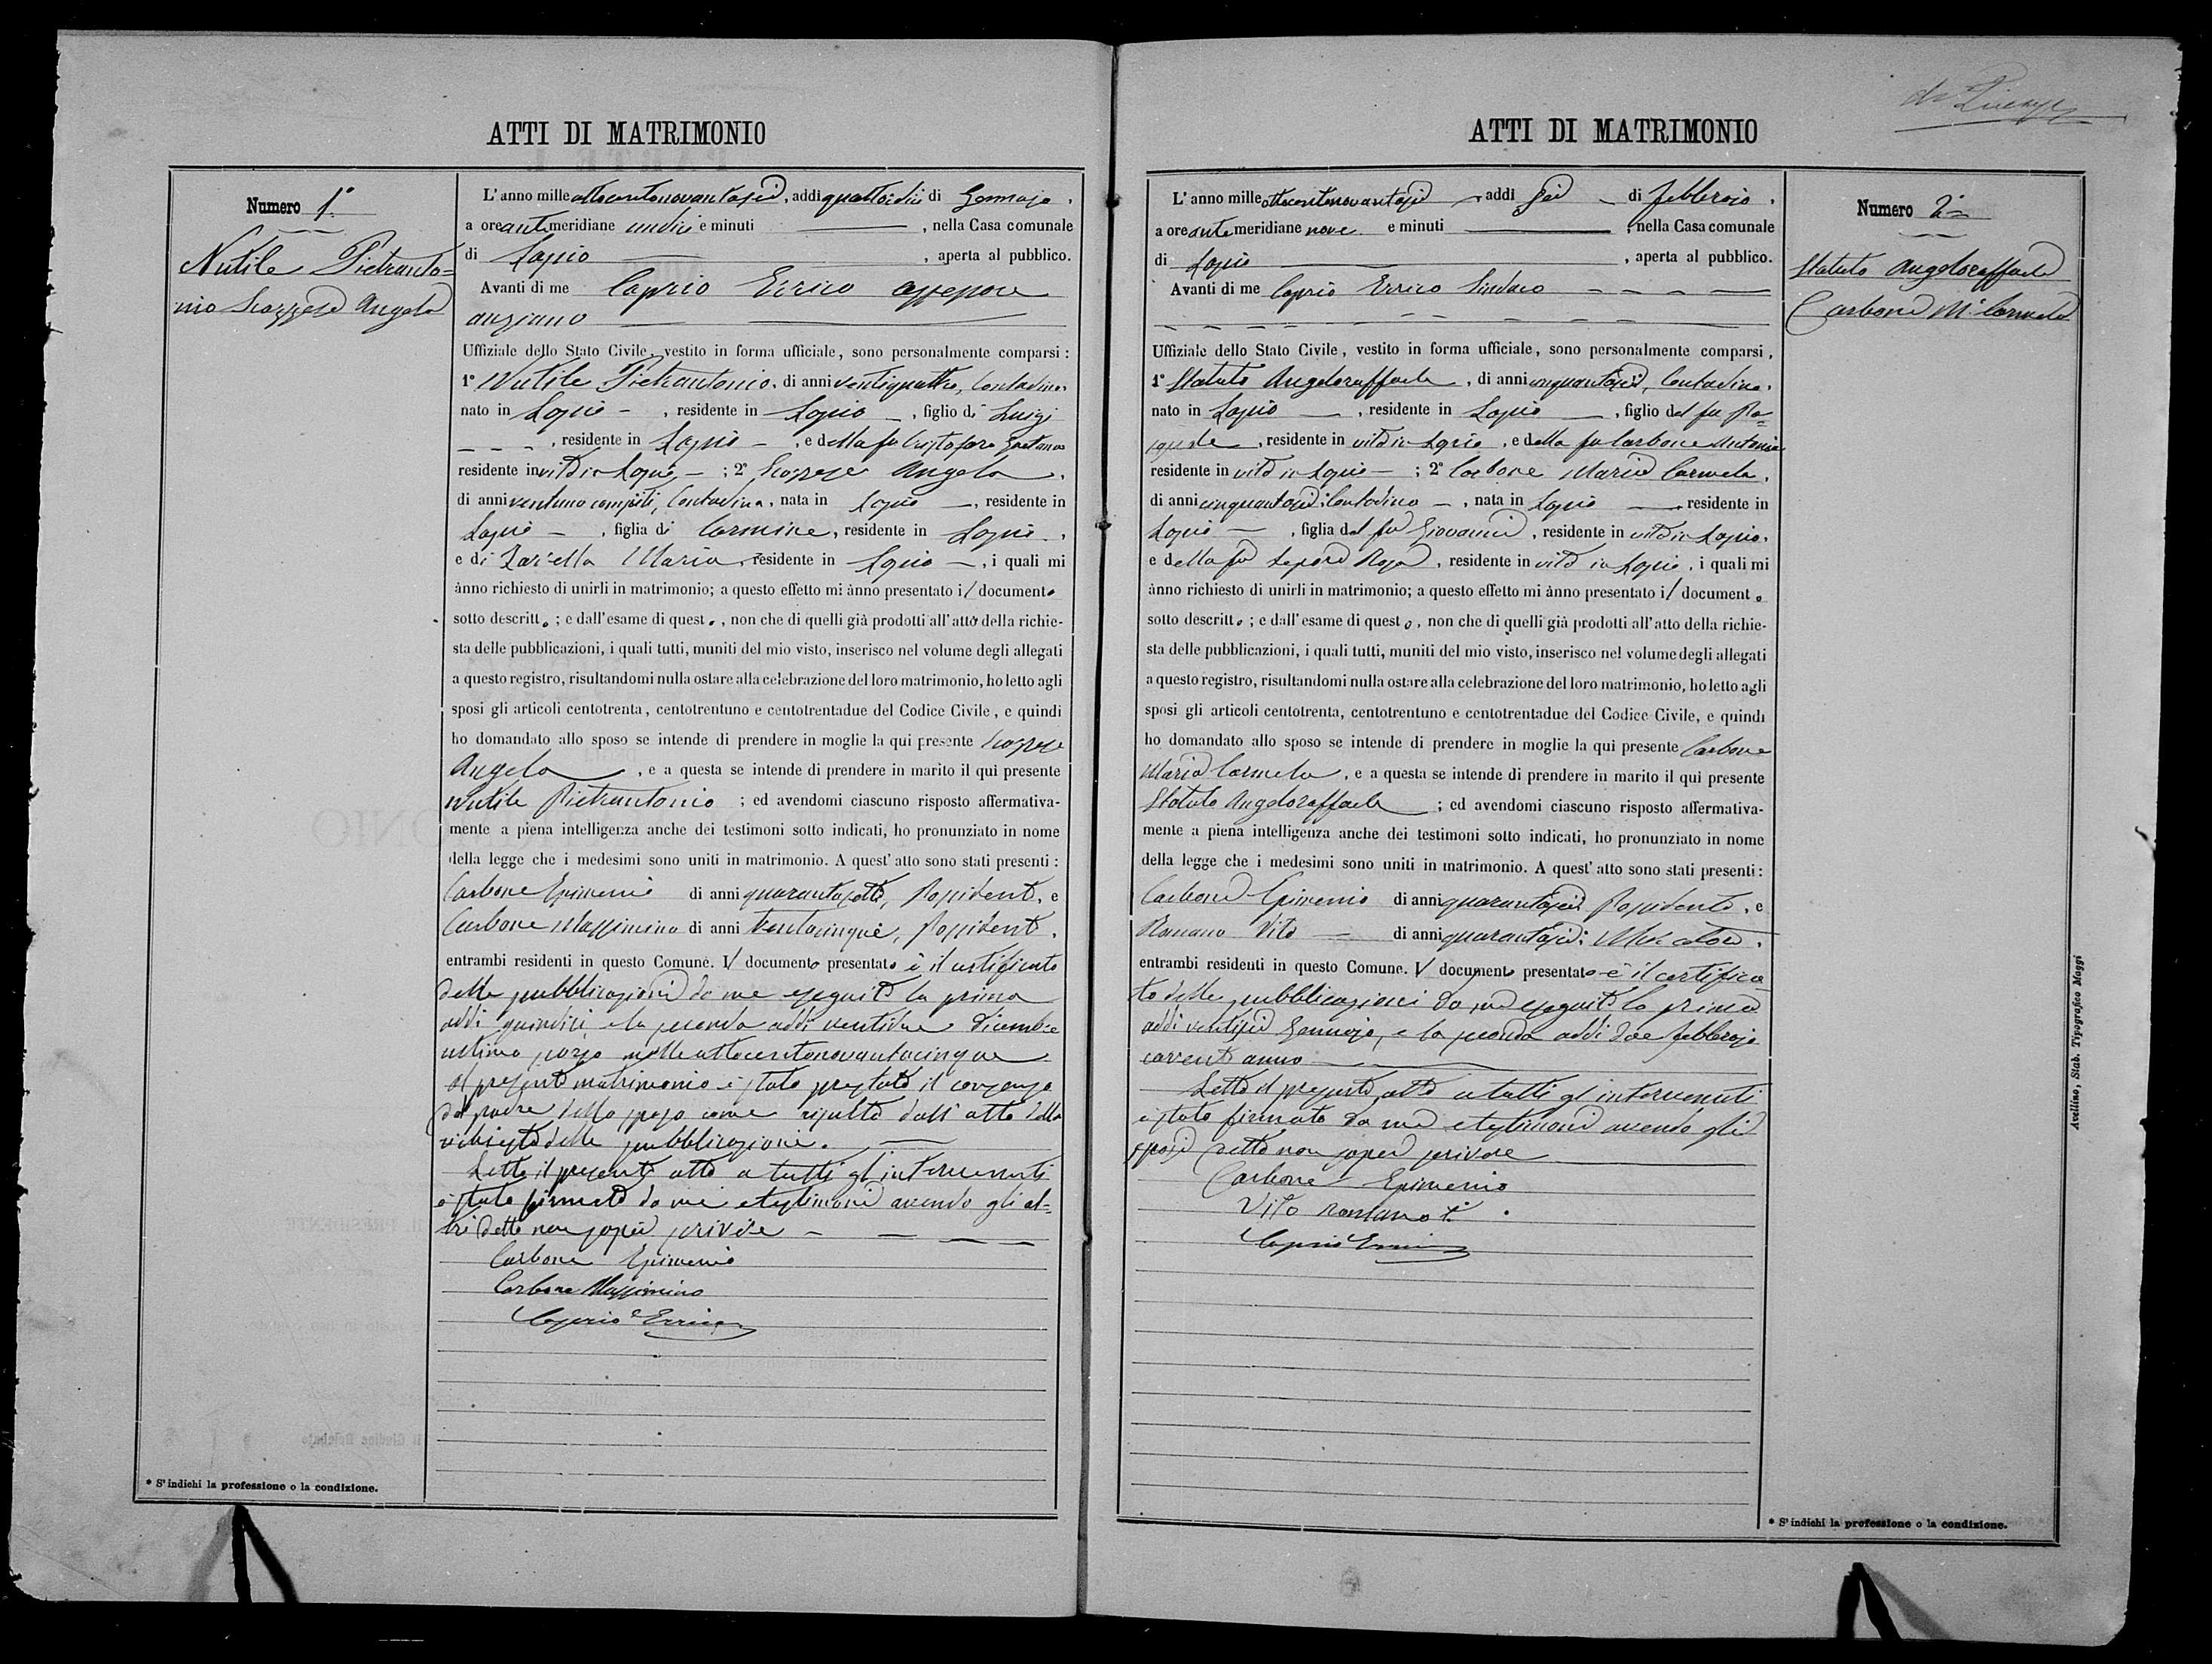 ATTI DI MATRIMONIO
Numero 1°
Nutile Pietranto=
nio Scozzese Angela
L'anno milleottocentonovantasei, addì quattordici di Gennajo,
a ore antimeridiane undici e minuti ——, nella Casa comunale
di Lapio ——, aperta al pubblico.
Avanti di me Caprio Errico assessore
anziano ——
Uffiziale dello Stato Civile, vestito in forma ufficiale, sono personalmente comparsi:
1° Nutile Pietrantonio, di anni ventiquattro, Contadino,
nato in Lapio –, residente in Lapio –, figlio di Luigi
– – –, residente in Lapio –, e della fu Cristofaro Gaetana
residente in vita in Lapio –; 2° Scozzese Angela,
di anni ventuno compiti, Contadina, nata in Lapio –, residente in
Lapio –, figlia di Carmine, residente in Lapio –,
e di Zarrella Maria, residente in Lapio –, i quali mi
ànno richiesto di unirli in matrimonio; a questo effetto mi ànno presentato il documento
sotto descritto; e dall'esame di questo, non che di quelli già prodotti all'atto della richie-
sta delle pubblicazioni, i quali tutti, muniti del mio visto, inserisco nel volume degli allegati
a questo registro, risultandomi nulla ostare alla celebrazione del loro matrimonio, ho letto agli
sposi gli articoli centotrenta, centotrentuno e centotrentadue del Codice Civile, e quindi
ho domandato allo sposo se intende di prendere in moglie la qui presente Scozzese
Angela ——, e a questa se intende di prendere in marito il qui presente
Nutile Pietrantonio ; ed avendomi ciascuno risposto affermativa-
mente a piena intelligenza anche dei testimoni sotto indicati, ho pronunziato in nome
della legge che i medesimi sono uniti in matrimonio. A quest'atto sono stati presenti:
Carbone Epimenio di anni quarantasette, Possidente, e
Carbone Massimino di anni trentacinque, Possidente,
entrambi residenti in questo Comune. Il documento presentato è il certificato
delle pubblicazioni da me eseguite la prima
addì quindici e la seconda addì ventidue Dicembre
ultimo scorso milleottocentonovantacinque
Al presente matrimonio è stato prestato il consenso
dal padre dello sposo come risulta dall'atto della
richiesta delle pubblicazioni. ——
Letto il presente atto a tutti gl'intervenuti
è stato firmato da me e testimoni avendo gli al=
tri detto non saper scrivere – – – –
Carbone Epimenio
Carbone Massimino
Caprio Errico
* S'indichi la professione o la condizione.
ATTI DI MATRIMONIO
Numero 2°
Statuto Angeloraffaele
Carbone Mª Carmela
L'anno milleottocentonovantasei, addì Sei – di Febbraio,
a ore antimeridiane nove e minuti ——, nella Casa comunale
di Lapio ——, aperta al pubblico.
Avanti di me Caprio Errico Sindaco – – – –
Uffiziale dello Stato Civile, vestito in forma ufficiale, sono personalmente comparsi,
1° Statuto Angeloraffaele, di anni cinquantasei, Contadino,
nato in Lapio –, residente in Lapio –, figlio del fu Pa=
squale, residente in vita in Lapio, e della fu Carbone Antonia
residente in vita in Lapio –; 2° Carbone Maria Carmela,
di anni cinquantasei, Contadina –, nata in Lapio ——, residente in
Lapio –, figlia del fu Giovanni, residente in vita in Lapio,
e della fu Lepore Rosa, residente in vita in Lapio, i quali mi
ànno richiesto di unirli in matrimonio; a questo effetto mi ànno presentato il documento
sotto descritto; e dall'esame di questo, non che di quelli già prodotti all'atto della richie-
sta delle pubblicazioni, i quali tutti, muniti del mio visto, inserisco nel volume degli allegati
a questo registro, risultandomi nulla ostare alla celebrazione del loro matrimonio, ho letto agli
sposi gli articoli centotrenta, centotrentuno e centotrentadue del Codice Civile, e quindi
ho domandato allo sposo se intende di prendere in moglie la qui presente Carbone
Maria Carmela, e a questa se intende di prendere in marito il qui presente
Statuto Angeloraffaele ; ed avendomi ciascuno risposto affermativa-
mente a piena intelligenza anche dei testimoni sotto indicati, ho pronunziato in nome
della legge che i medesimi sono uniti in matrimonio. A quest'atto sono stati presenti:
Carbone Epimenio di anni quarantasei Possidente, e
Romano Vito – di anni quarantasei,
entrambi residenti in questo Comune. Il documento presentato è il certifica
to delle pubblicazioni da me eseguite la prima
addì ventisei Gennajo, e la seconda addì due Febbrajo
corrente anno ——
Letto il presente atto a tutti gl'intervenuti
è stato firmato da me e testimoni avendo gli
sposi detto non saper scrivere ——
Carbone Epimenio
Vito Romano t.
Caprio Errico
* S'indichi la professione o la condizione.
Avellino, Stab. Tipografico Maggi